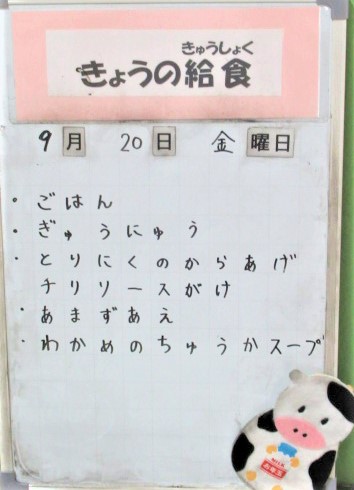 きゅうしょく
きょうの給食
9月 20日 金曜日
・ごはん
・ぎゅうにゅう
・とりにくのからあげ
チリソースがけ
・あまずあえ
・わかめのちゅうかスープ